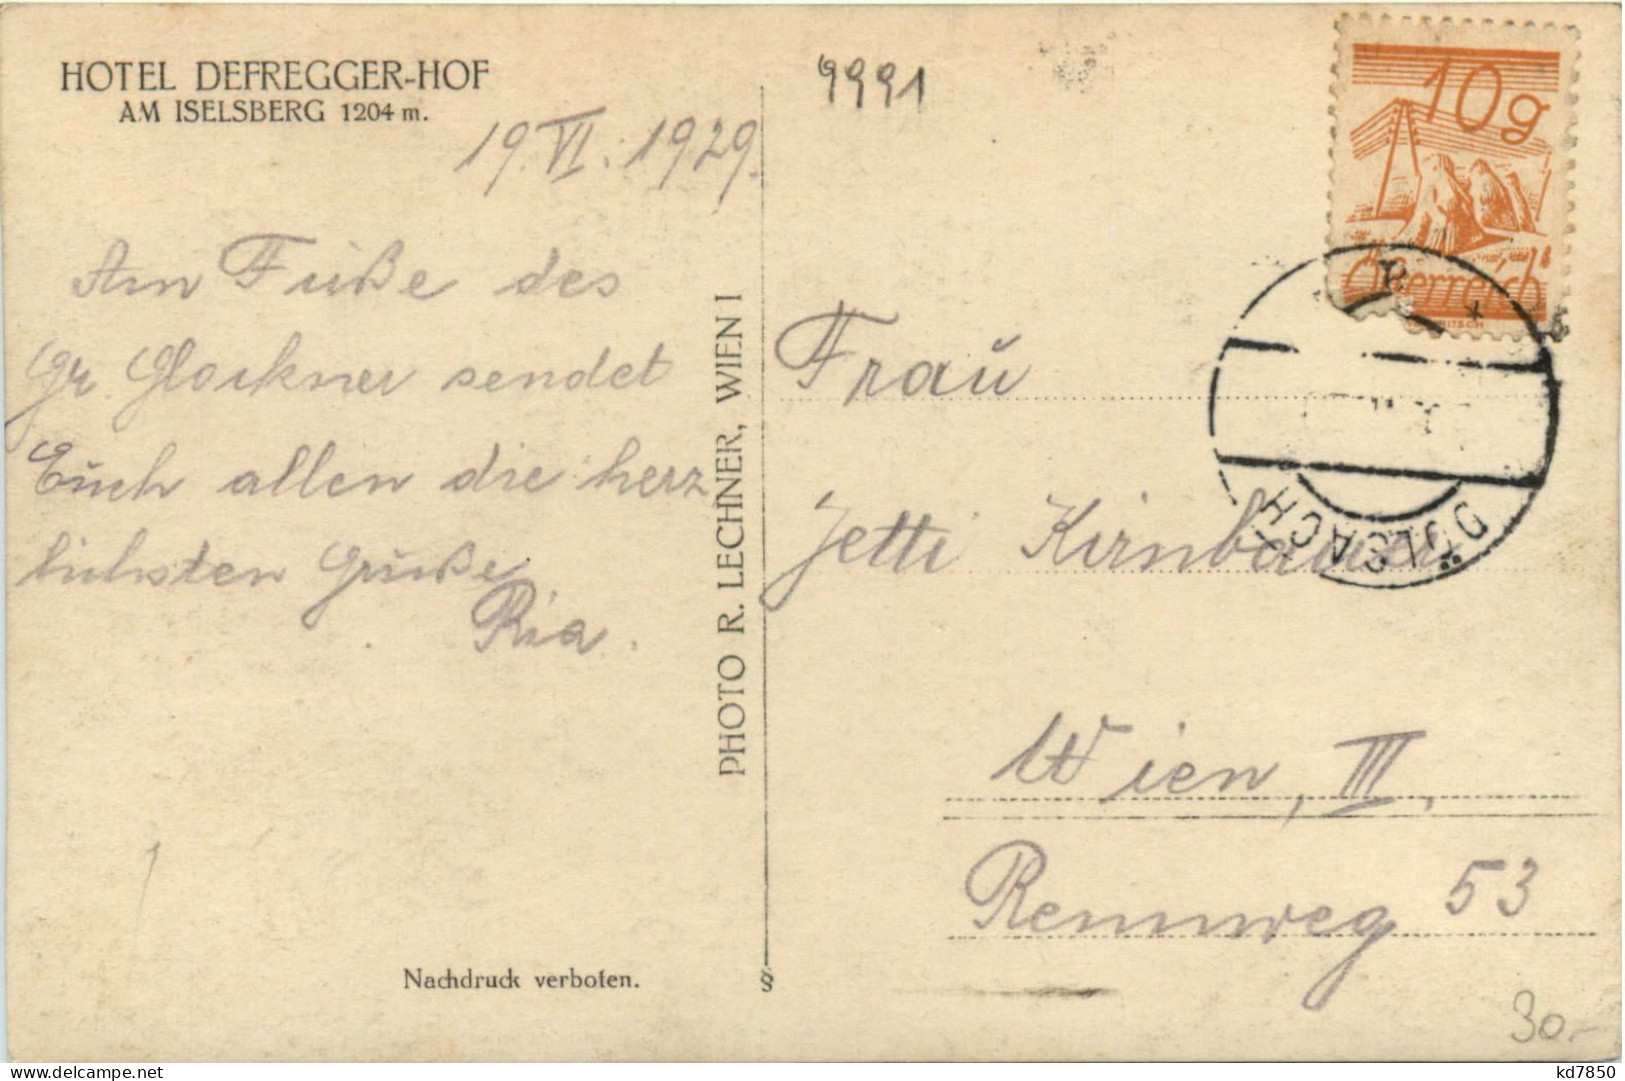 HOTEL DEFREGGER-HOF
AM ISELSBERG 1204 m.
19. VI. 1929.
Am Fuße des
Gr. Glockner sendet
Euch allen die herz
lichsten Grüße
Ria.
Nachdruck verboten.
PHOTO R. LECHNER, WIEN I
§
9991
10g
Österreich
DÖLSACH
Frau
Jetti Kirnbauer
Wien, III.
Rennweg 53
30.-
delcampe.net
kd7850